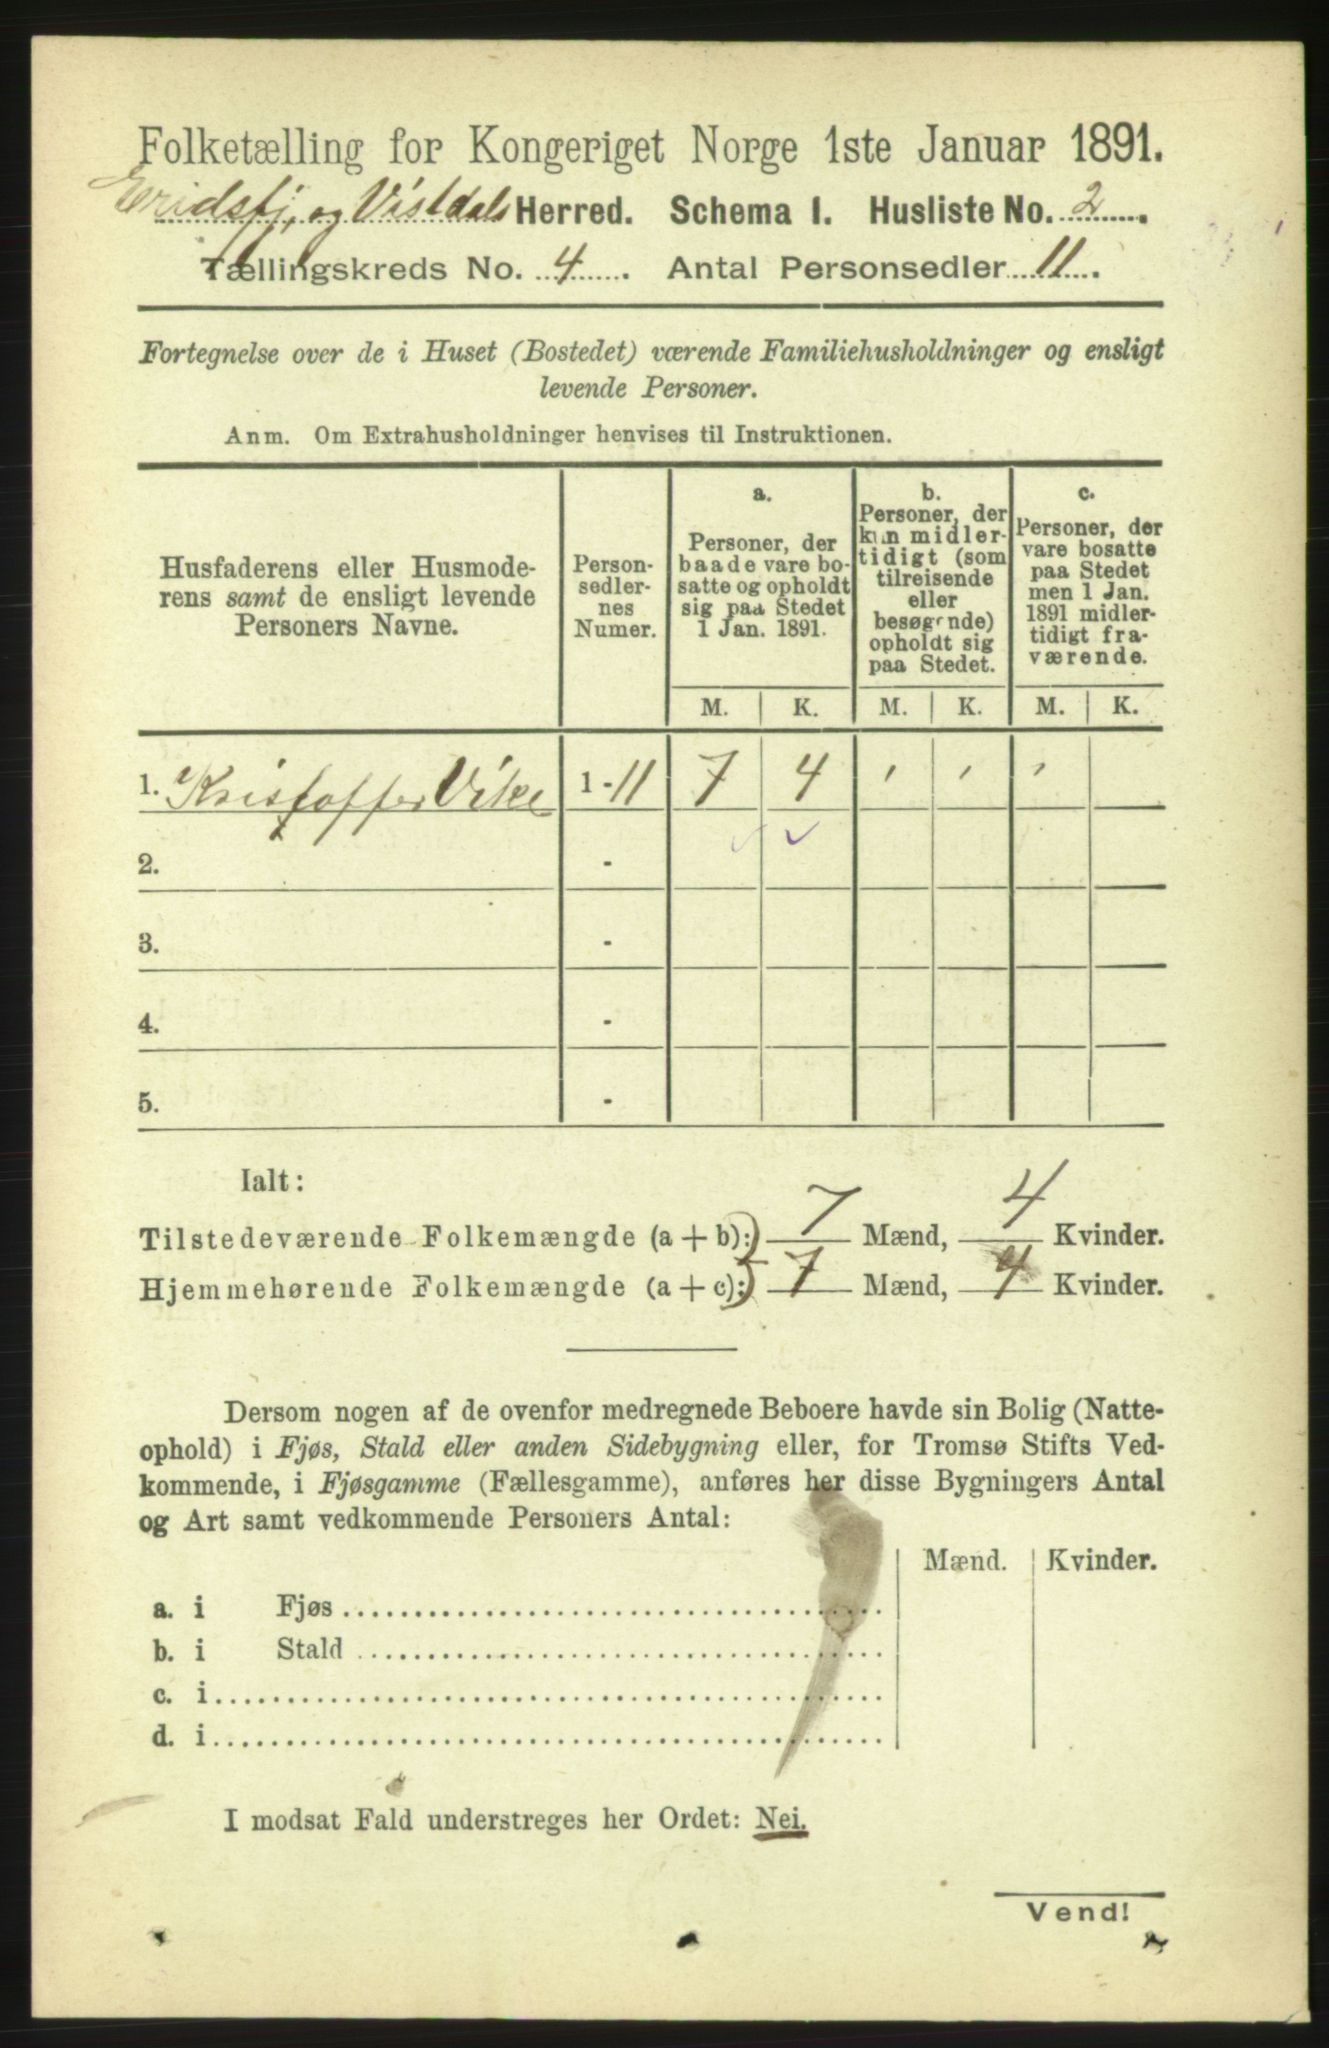 Folketælling for Kongeriget Norge 1ste Januar 1891.
Eridsfj. og Vistdals Herred. Schema I. Husliste No. 2.
Tællingskreds No. 4. Antal Personsedler 11.
Fortegnelse over de i Huset (Bostedet) værende Familiehusholdninger og ensligt
levende Personer.
Anm. Om Extrahusholdninger henvises til Instruktionen.
Husfaderens eller Husmode-
rens samt de ensligt levende
Personers Navne.
Person-
sedler-
nes
Numer.
a.
Personer, der
baade vare bo-
satte og opholdt
sig paa Stedet
1 Jan. 1891.
b.
Personer, der
kun midler-
tidigt (som
tilreisende
eller
besøgende)
opholdt sig
paa Stedet.
c.
Personer, der
vare bosatte
paa Stedet
men 1 Jan.
1891 midler-
tidigt fra-
værende.
M. K. M. K. M. K.
1. Kristoffer Vike 1 - 11 7 4 ' ' '
2. -
3. -
4. -
5. -
Ialt:
Tilstedeværende Folkemængde (a + b): 7 Mænd, 4 Kvinder.
Hjemmehørende Folkemængde (a + c): 7 Mænd, 4 Kvinder.
Dersom nogen af de ovenfor medregnede Beboere havde sin Bolig (Natte-
ophold) i Fjøs, Stald eller anden Sidebygning eller, for Tromsø Stifts Ved-
kommende, i Fjøsgamme (Fællesgamme), anføres her disse Bygningers Antal
og Art samt vedkommende Personers Antal:
Mænd. Kvinder.
a. i Fjøs
b. i Stald
c. i
d. i
I modsat Fald understreges her Ordet: Nei.
Vend!